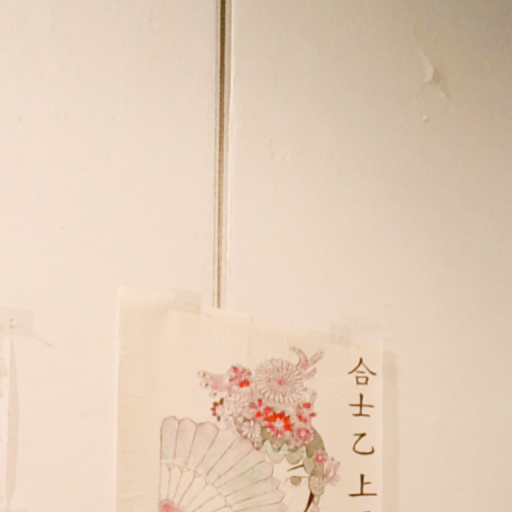 合士乙上